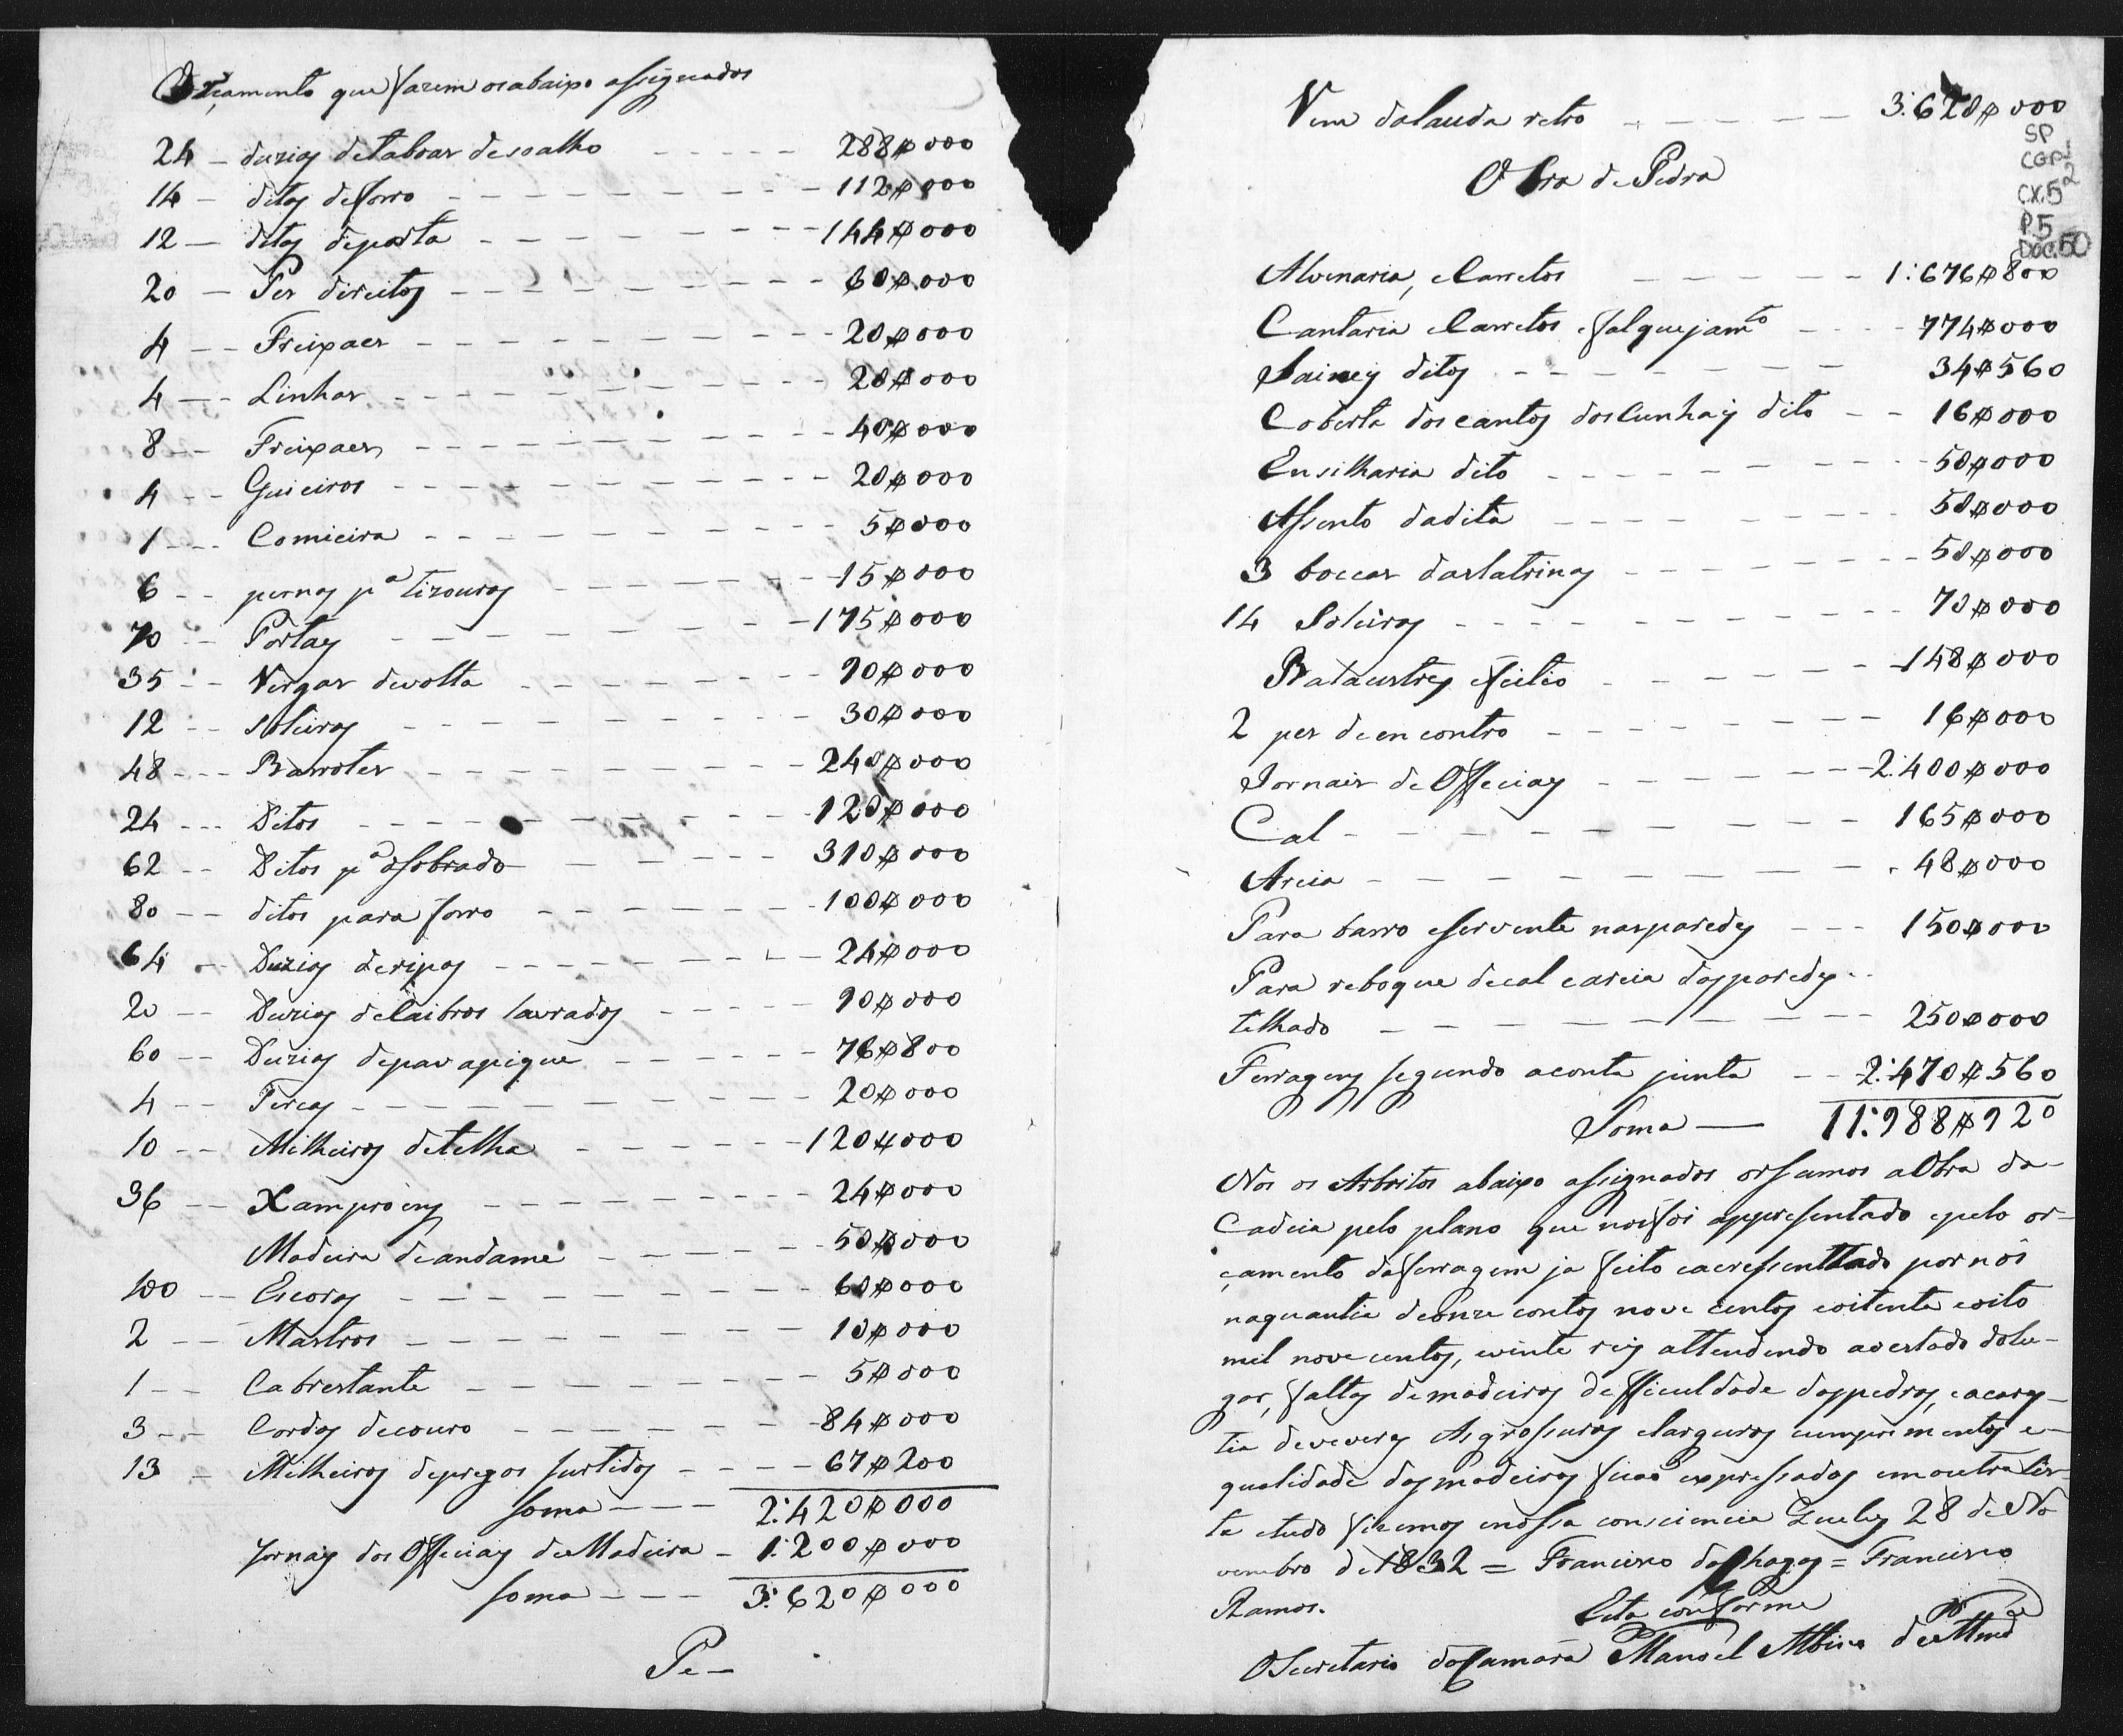 Orçamento que fazem os abaixo assignados
24 - duzias de taboas de soalho - - - - - 288$000
14 - ditas de forro - - - - - - - - 112$000
12 - ditas de porta - - - - - - - - 144$000
20 - Pes direitos - - - - - - - - 60$000
4 - - Freixaes - - - - - - - - 20$000
4 - - Linhas - - - - - - - - 20$000
8 - - Freixaes - - - - - - - - 40$000
4 - - Guieiros - - - - - - - - 20$000
1 - - Comieira - - - - - - - - 5$000
6 - - pernas pª tizouras - - - - - - 15$000
70 - Portaes - - - - - - - - 175$000
35 - - Vergas de volta - - - - - - - 90$000
12 - - Soleiras - - - - - - - - 30$000
48 - - - Barrotes - - - - - - - - 240$000
24 - - - Ditos - - - - - - - - 120$000
62 - - Ditos pª o sobrado - - - - - 310$000
80 - - ditos para forro - - - - - - 100$000
64 - - Duzias de ripas - - - - - - - 24$000
20 - - Duzias de Caibros lavrados - - - - 90$000
60 - - Duzias de pao a pique - - - - - 76$800
4 - - Tercas - - - - - - - - 20$000
10 - - Milheiros de telha - - - - - - 120$000
36 - - Xamproens - - - - - - - 24$000
Madeira de andame - - - - - 50$000
100 - - Escoras - - - - - - - - 60$000
2 - - Mastros - - - - - - - - 10$000
1 - - Cabrestante - - - - - - - 5$000
3 - - Cordas de couro - - - - - - 84$000
13 - Milheiros de pregos surtidos - - - - 67$200
Soma - - - 2:420$000
Jornaes dos Officiaes de Madeira - 1:200$000
Soma - - - 3:620$000
Pe -
Vem da lauda retro - - - - - 3:620$000
SP
CGP1
CX.52
P.5
DOC.50
Obra de Pedra
Alvenaria, e Carretos - - - - - 1:676$800
Cantaria e Carretos e falquejamto - - - 774$000
Saimeis ditos - - - - - - - 34$560
Coberta dos cantos dos Cunhaes dito - - 16$000
Ensilharia dito - - - - - - - 50$000
Assento da dita - - - - - - - 50$000
3 boccas das latrinas - - - - - - 50$000
14 Soleiras - - - - - - - - 70$000
Balaustres e feitio - - - - - - 148$000
2 pes de encontro - - - - - - 16$000
Jornais de Officiaes - - - - - - 2:400$000
Cal - - - - - - - - 165$000
Areia - - - - - - - - 48$000
Para barro e servente nas paredes - - - 150$000
Para reboque de cal e areia das paredes - -
telhado - - - - - - - - 250$000
Ferragens segundo a conta junta - - 2:470$560
Soma - 11:988$920
Nos os Arbitos abaixo assignados orsamos a Obra da
Cadeia pelo plano que nos foi appresentado e pelo or-
çamento da ferragem ja feito e acressenttado por nós
na quantia de onze contos nove centos e oitenta e oito
mil nove centos, e vinte reis attendendo ao estado do lu-
gar, faltas de madeiras defficuldade das pedras, e a cares-
tia de viveres As grossuras e larguras cumprimentos e
qualidade das madeiras ficaõ expressadas em outra lis-
ta e tudo fizemos em nossa consciencia Queluz 28 de No
vembro de 1832 = Francisco das Chagas = Francisco
Ramos.
Esta conforme
O Secretario da Camara Manoel Albino de Almdª